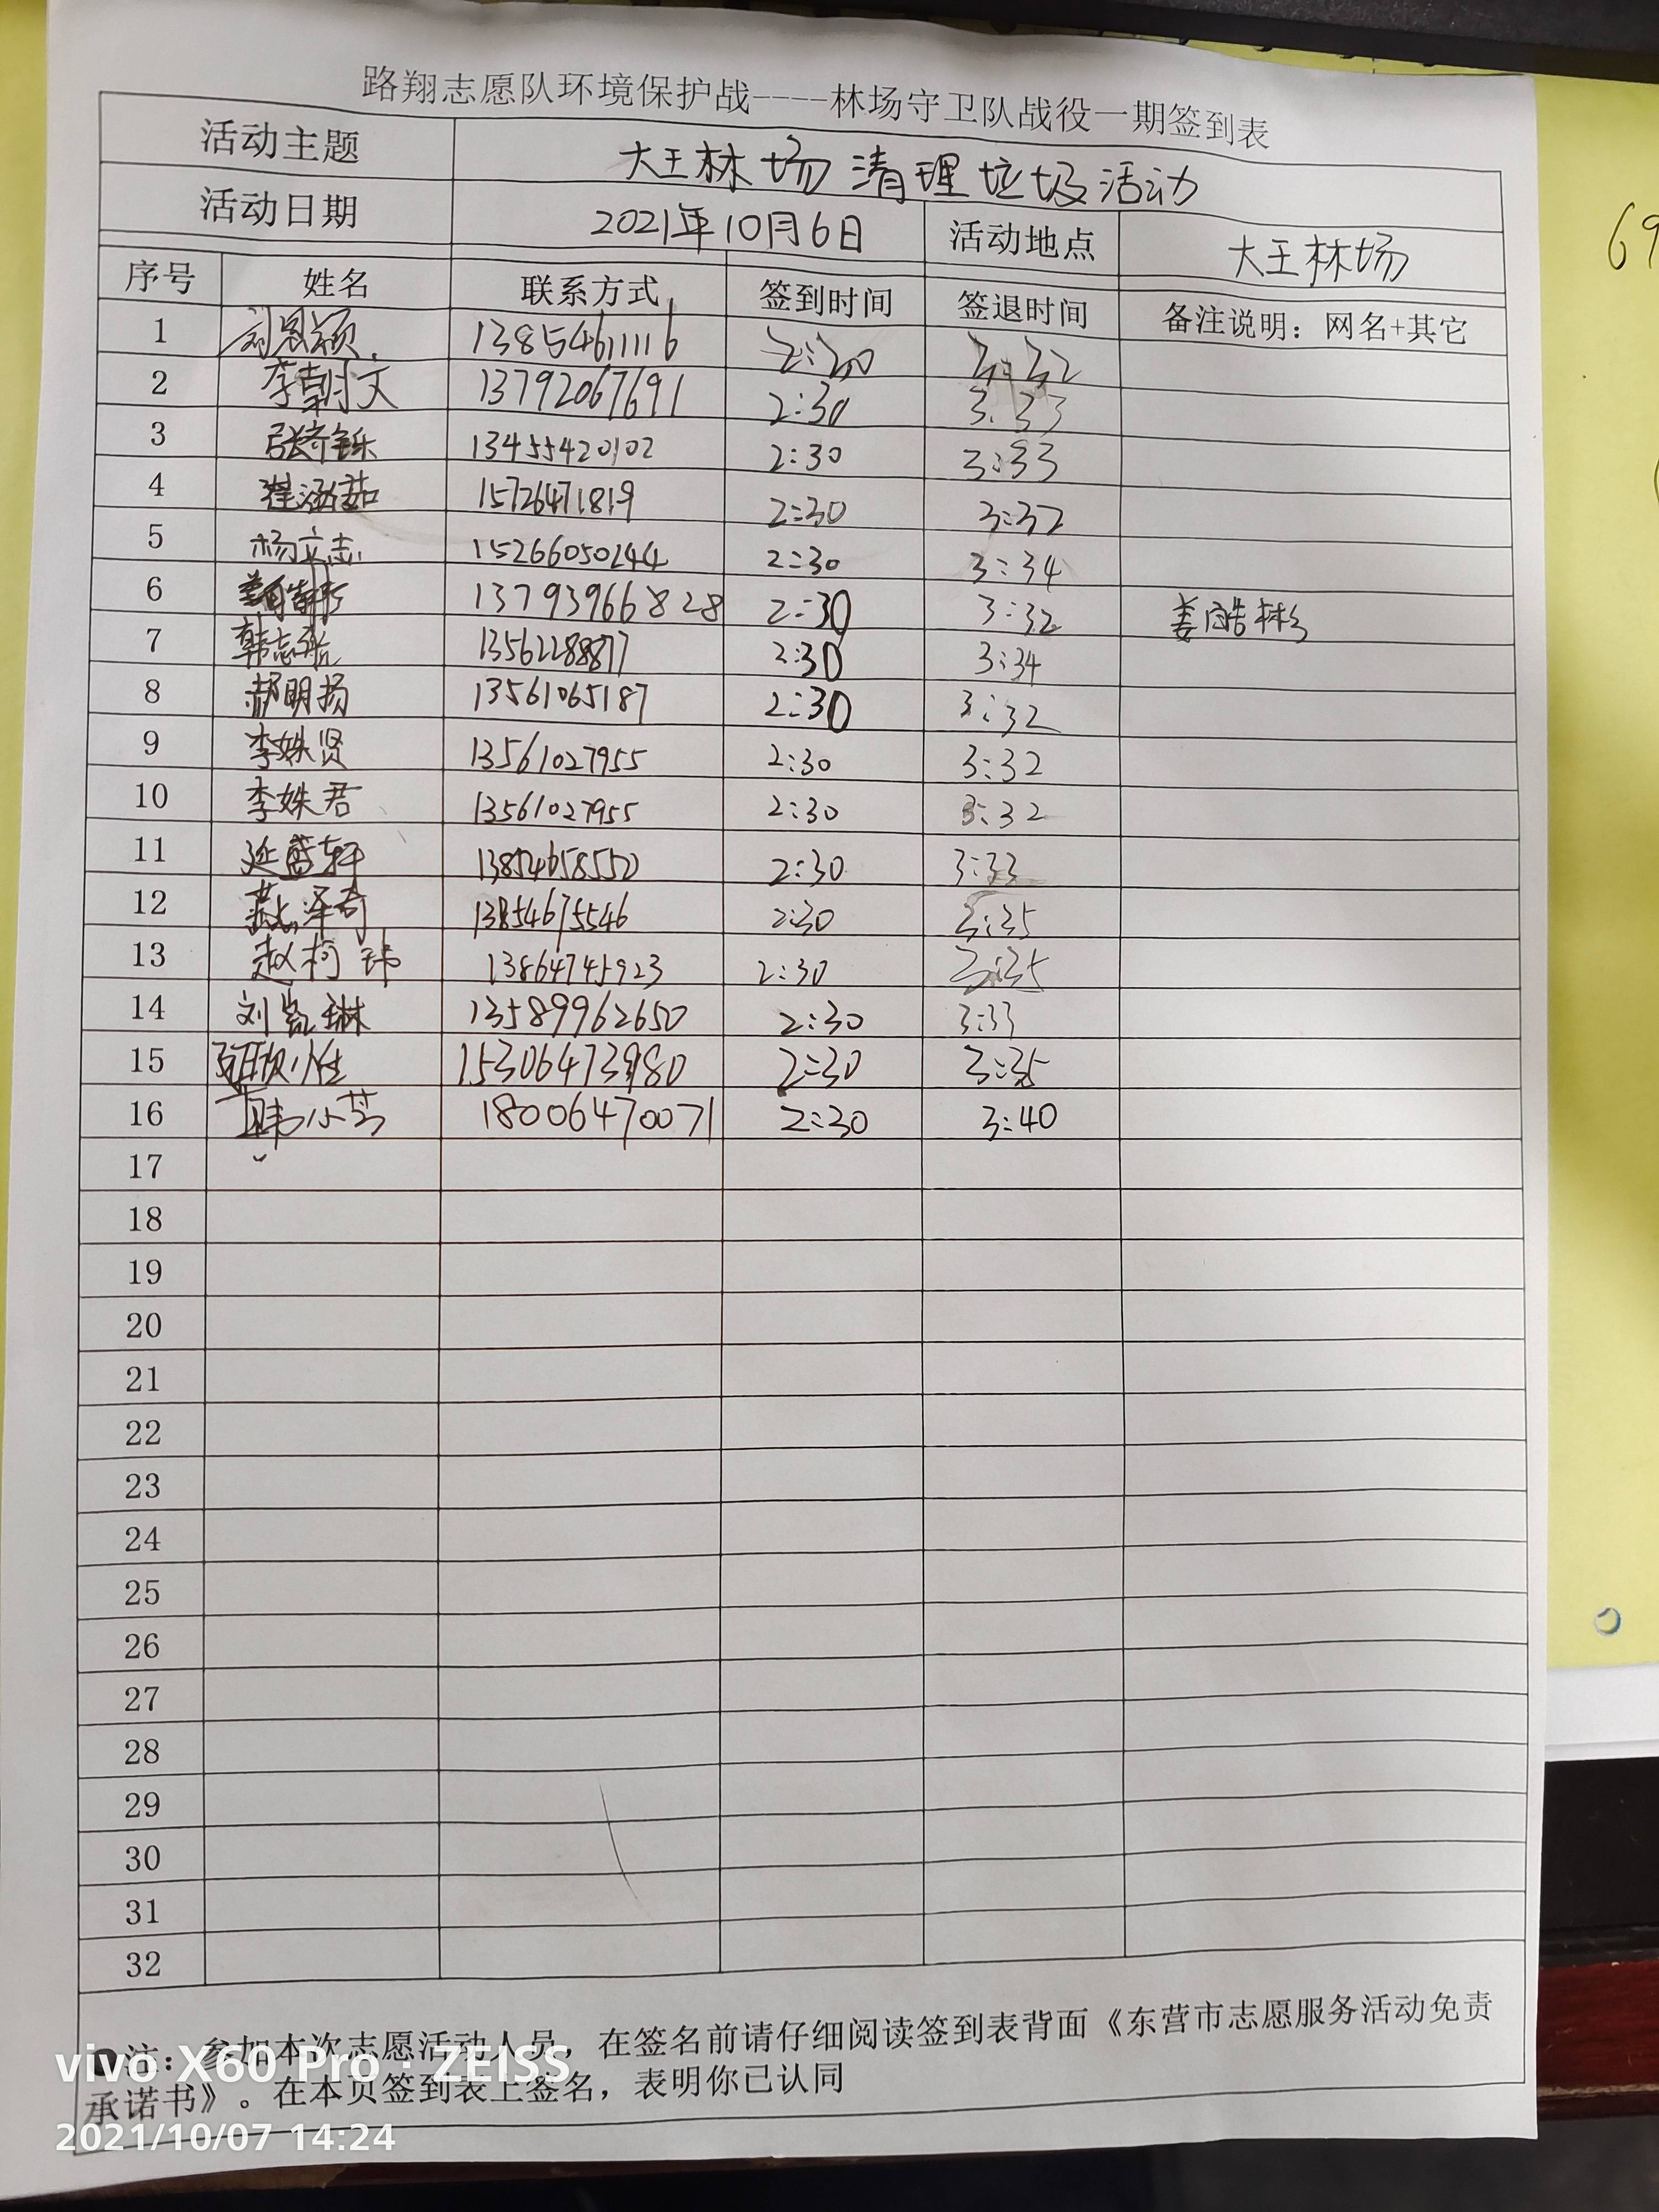 路翔志愿队环境保护战----林场守卫队战役一期签到表
活动主题 大王林场清理垃圾活动
活动日期 2021年10月6日 活动地点 大王林场
序号 姓名 联系方式 签到时间 签退时间 备注说明：网名+其它
1 刘恩颖 13854611116 2:30 3:32
2 李朝文 13792067691 2:30 3:33
3 张奇铄 13455420102 2:30 3:33
4 崔涵茹 15726471819 2:30 3:32
5 杨立志 15266050244 2:30 3:34
6 13793966828 2:30 3:32 姜
7 韩志 13562288877 2:30 3:34
8 郝明扬 13561065187 2:30 3:32
9 李姝贤 13561027955 2:30 3:32
10 李姝君 13561027955 2:30 3:32
11 延蓝轩 13854658550 2:30 3:33
12 燕泽奇 13854675546 2:30 3:35
13 赵柯玮 13864745923 2:30 3:35
14 刘凯琳 13589962650 2:30 3:33
15 15306473980 2:30 3:35
16 韩小芳 18006470071 2:30 3:40
17
18
19
20
21
22
23
24
25
26
27
28
29
30
31
32
注：参加本次志愿活动人员，在签名前请仔细阅读签到表背面《东营市志愿服务活动免责
承诺书》。在本页签到表上签名，表明你已认同
vivo X60 Pro · ZEISS
2021/10/07 14:24
69